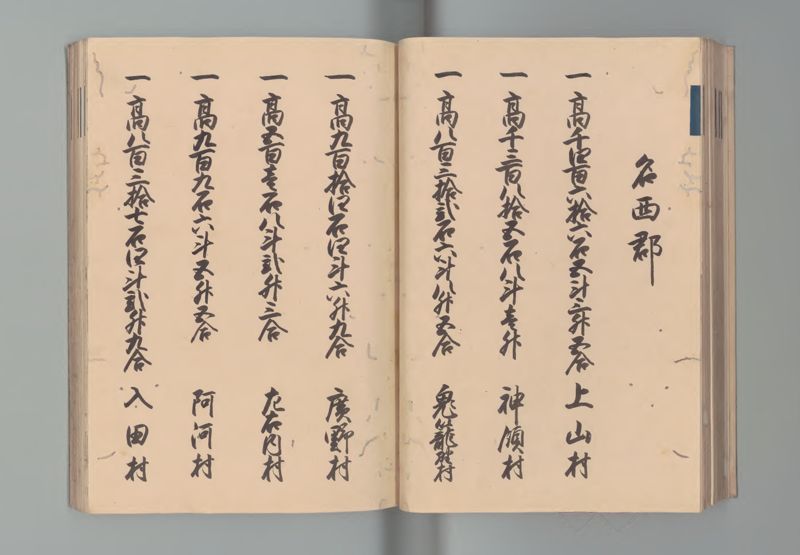 名西郡
一 高千四百六拾六石五斗三升五合 上山村
一 高千三百八拾五石八斗壱升 神領村
一 高八百三拾弐石六斗八升五合 鬼籠野村
一 高九百拾四石四斗六升九合 廣野村
一 高五百壱石八斗弐升三合 左右内村
一 高九百九石六斗五升五合 阿河村
一 高八百三拾七石四斗弐升九合 入田村